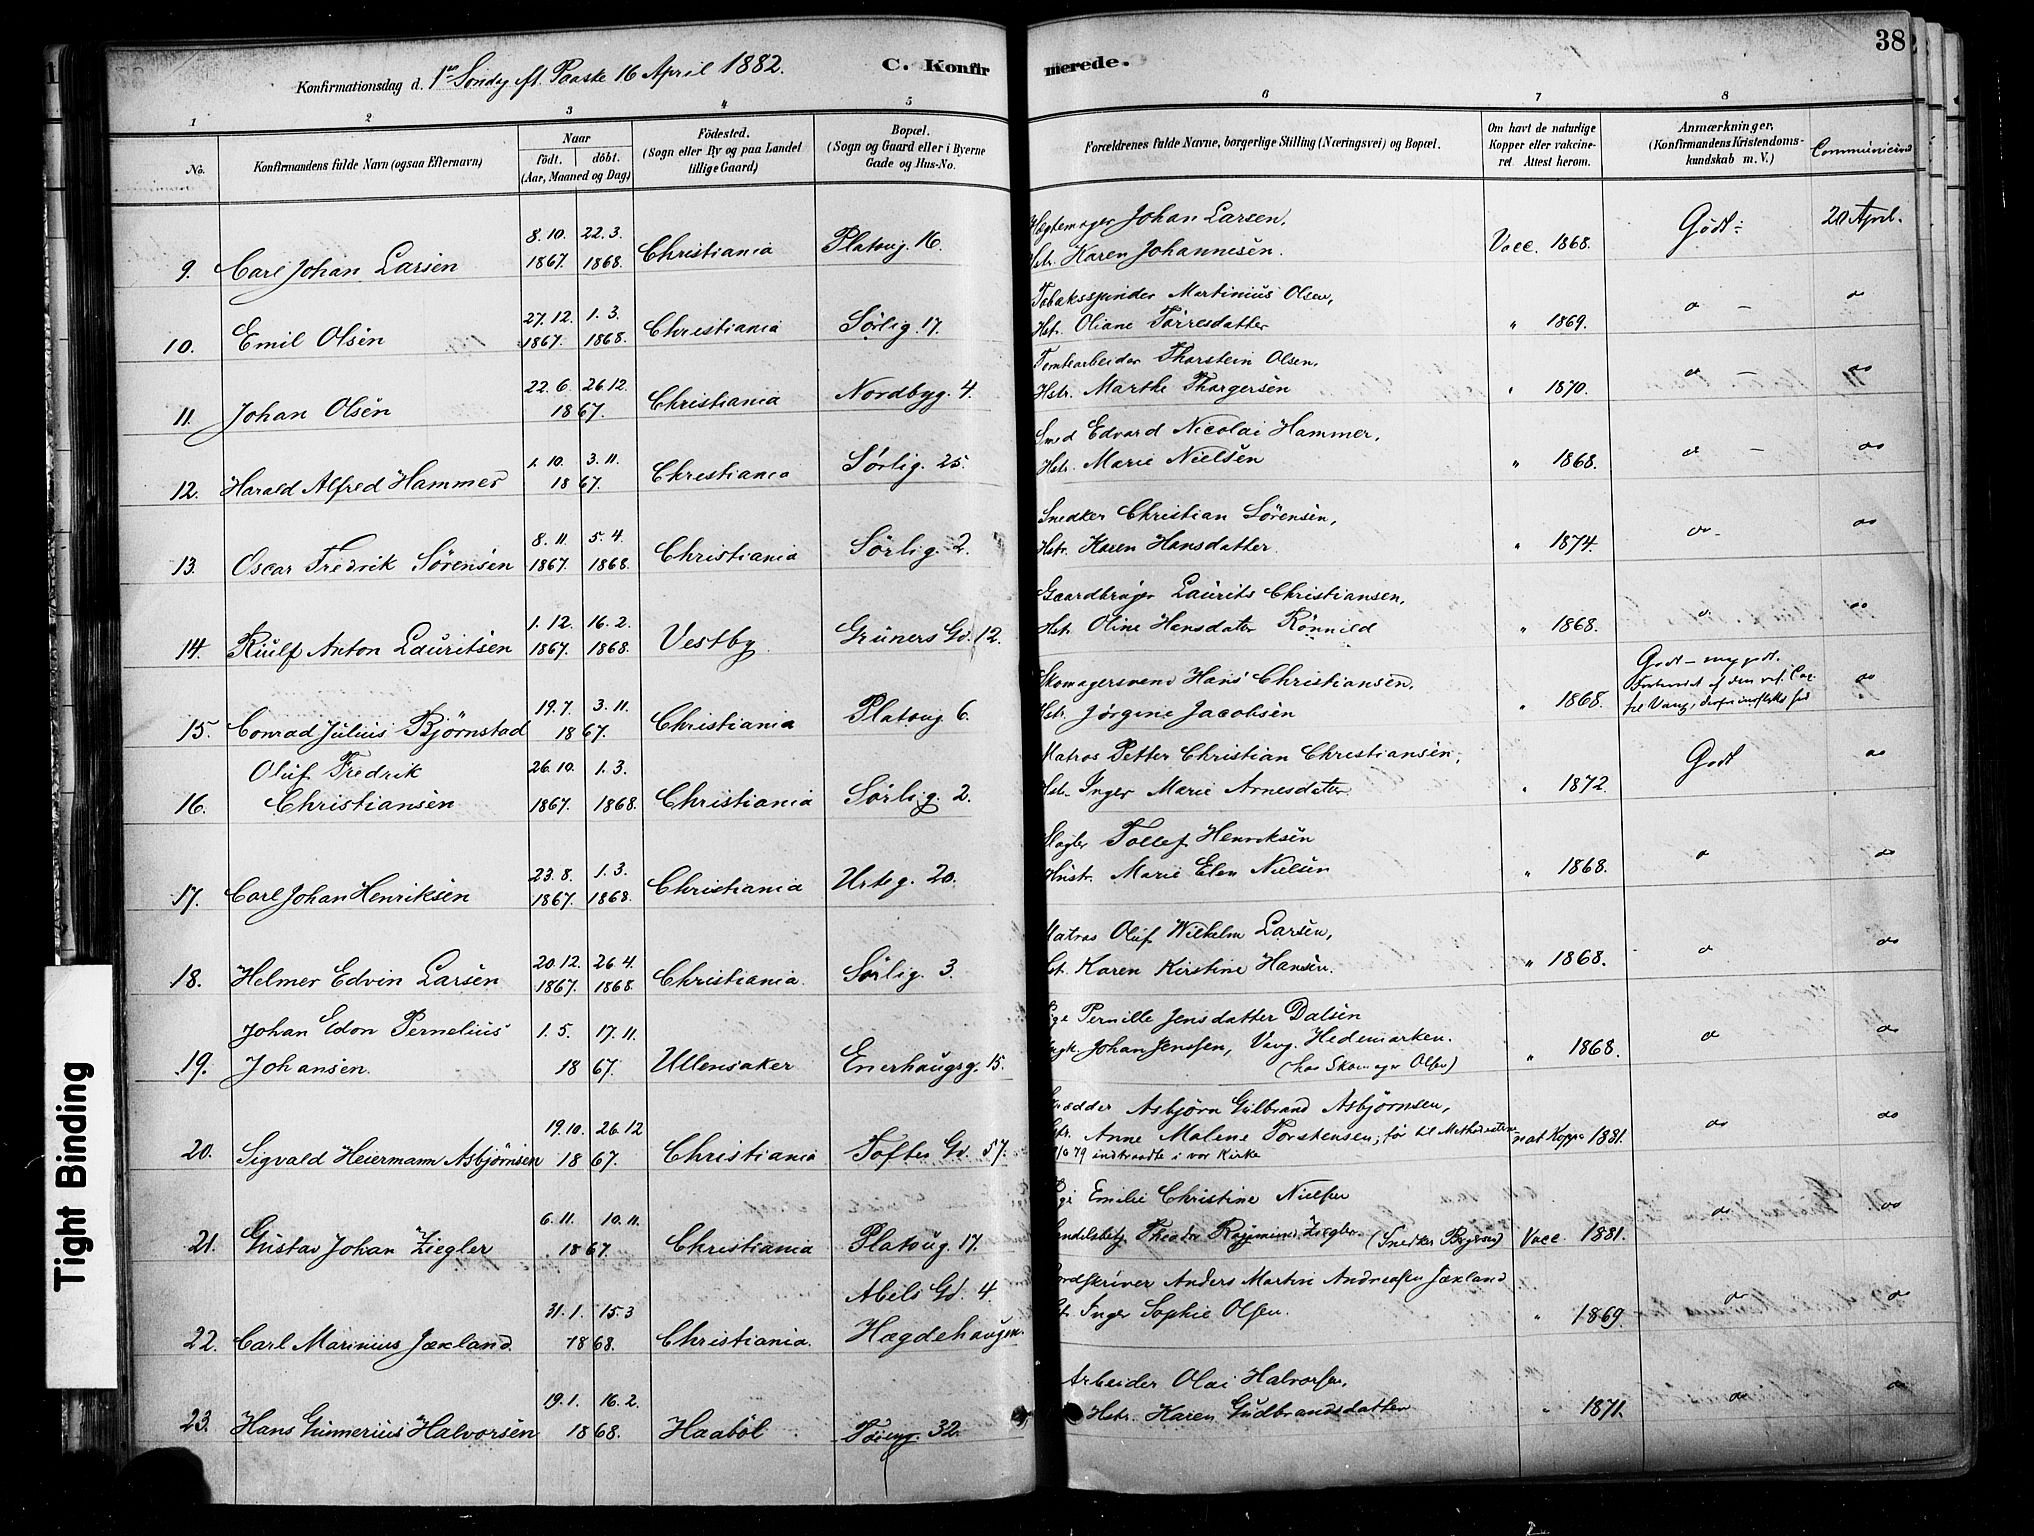 38
Konfirmationsdag d. 1ste Søndg eft. Paaske 16 April 1882.
C. Konfirmerede.
1 2 3 4 5 6 7 8
No.
Konfirmandens fulde Navn (ogsaa Efternavn)
Naar
født. døbt.
(Aar, Maaned og Dag)
Fødested.
(Sogn eller By og paa Landet
tillige Gaard)
Bopæl.
(Sogn og Gaard eller i Byerne
Gade og Hus-No.
Forældrenes fulde Navne, borgerlige Stilling (Næringsvei) og Bopæl.
Om havt de naturlige
Kopper eller vakcine-
ret. Attest herom.
Anmærkninger.
(Konfirmandens Kristendoms-
kundskab m. V.)
9. Carl Johan Larsen 8.10. 1867. 22.3. 1868. Christiania Platoug. 16.
Johan Larsen,
Hstr. Karen Johannesen. Vacc. 1868. Godt 20 April.
10. Emil Olsen 27.12. 1867. 1.3. 1868. Christiania Sørlig. 17.
Tobaksspinder Martinius Olsen,
Hstr. Oliane Torresdatter " 1869. do – do
11. Johan Olsen 22.6. 26.12. 1867. Christiania Nordbyg. 4.
Tomtearbeider Thorstein Olsen,
Hstr. Marthe Thorgersen " 1870. do – do
12. Harald Alfred Hammer 1.10. 3.11. 1867. Christiania Sørlig. 25.
Smed Edvard Nicolai Hammer,
Hstr. Marie Nielsen " 1868. do – do
13. Oscar Fredrik Sørensen 8.11. 1867. 5.4. 1868. Christiania Sørlig. 2.
Snedker Christian Sørensen,
Hstr. Karen Hansdatter. " 1874. do do
14. Rulf Anton Lauritsen 1.12. 1867. 16.2. 1868. Vestby Grüners Gd. 12.
Gaardbruger Laurits Christiansen,
Hstr. Oline Hansdatter " 1868. do do
15. Conrad Julius Bjørnstad 19.7. 3.11. 1867. Christiania Platoug. 6.
Skomagersvend Hans Christiansen,
Hstr. Jørgine Jacobsen " 1868. Godt – do
til Vang,
16. Oluf Fredrik
Christiansen 26.10. 1867. 1.3. 1868. Christiania Sørlig. 2.
Matros Petter Christian Christiansen,
Hstr. Inger Marie Arnesdatter " 1872. Godt do
17. Carl Johan Henriksen 23.8. 1867. 1.3. 1868. Christiania Urteg. 20.
Tollef Henriksen
Hustr. Marie Elen Nielsen " 1868. do do
18. Helmer Edvin Larsen 20.12. 1867. 26.4. 1868. Christiania. Sørlig. 3.
Matros Oluf Wilhelm Larsen,
Hst. Karen Kirstine Hansen. " 1868. do do
19. Johan Edon Pernelius
Johansen. 1.5. 17.11. 1867. Ullensaker Enerhaugsg. 15.
Pige Pernille Jensdatter Dalsen
Johan Jenssen, Vang. Hedemarken.
(hos Skomager Olsen) " 1868. do do
20. Sigvald Heiermann Asbjørnsen 19.10. 26.12 1867. Christiania Toftes Gd. 57.
Asbjørn Gulbrand Asbjørnsen,
Anne Malene Torstensen; før til
79 indtraadte i vor Kirke nat Kopp. 1881. do do
21. Gustav Johan Ziegler 6.11. 10.11. 1867. Christiania Platoug. 17.
Pige Emilie Christine Nielsen
Ziegler (Snedker) Vacc. 1881. do do
22. Carl Marinius Jæxland. 31.1. 15.3 1868. Christiania. Abels Gd. 4.
Hægdehaugen.
Anders Martin Andreassen Jæxland
Inger Sophie Olsen. " 1869. do do
23. Hans Gunnerius Halvorsen 19.1. 16.2. 1868. Haabøl Tøieng. 32.
Arbeider Olai Halvorsen,
Hstr. Karen Gudbrandsdatter " 1871. do do
Tight Binding